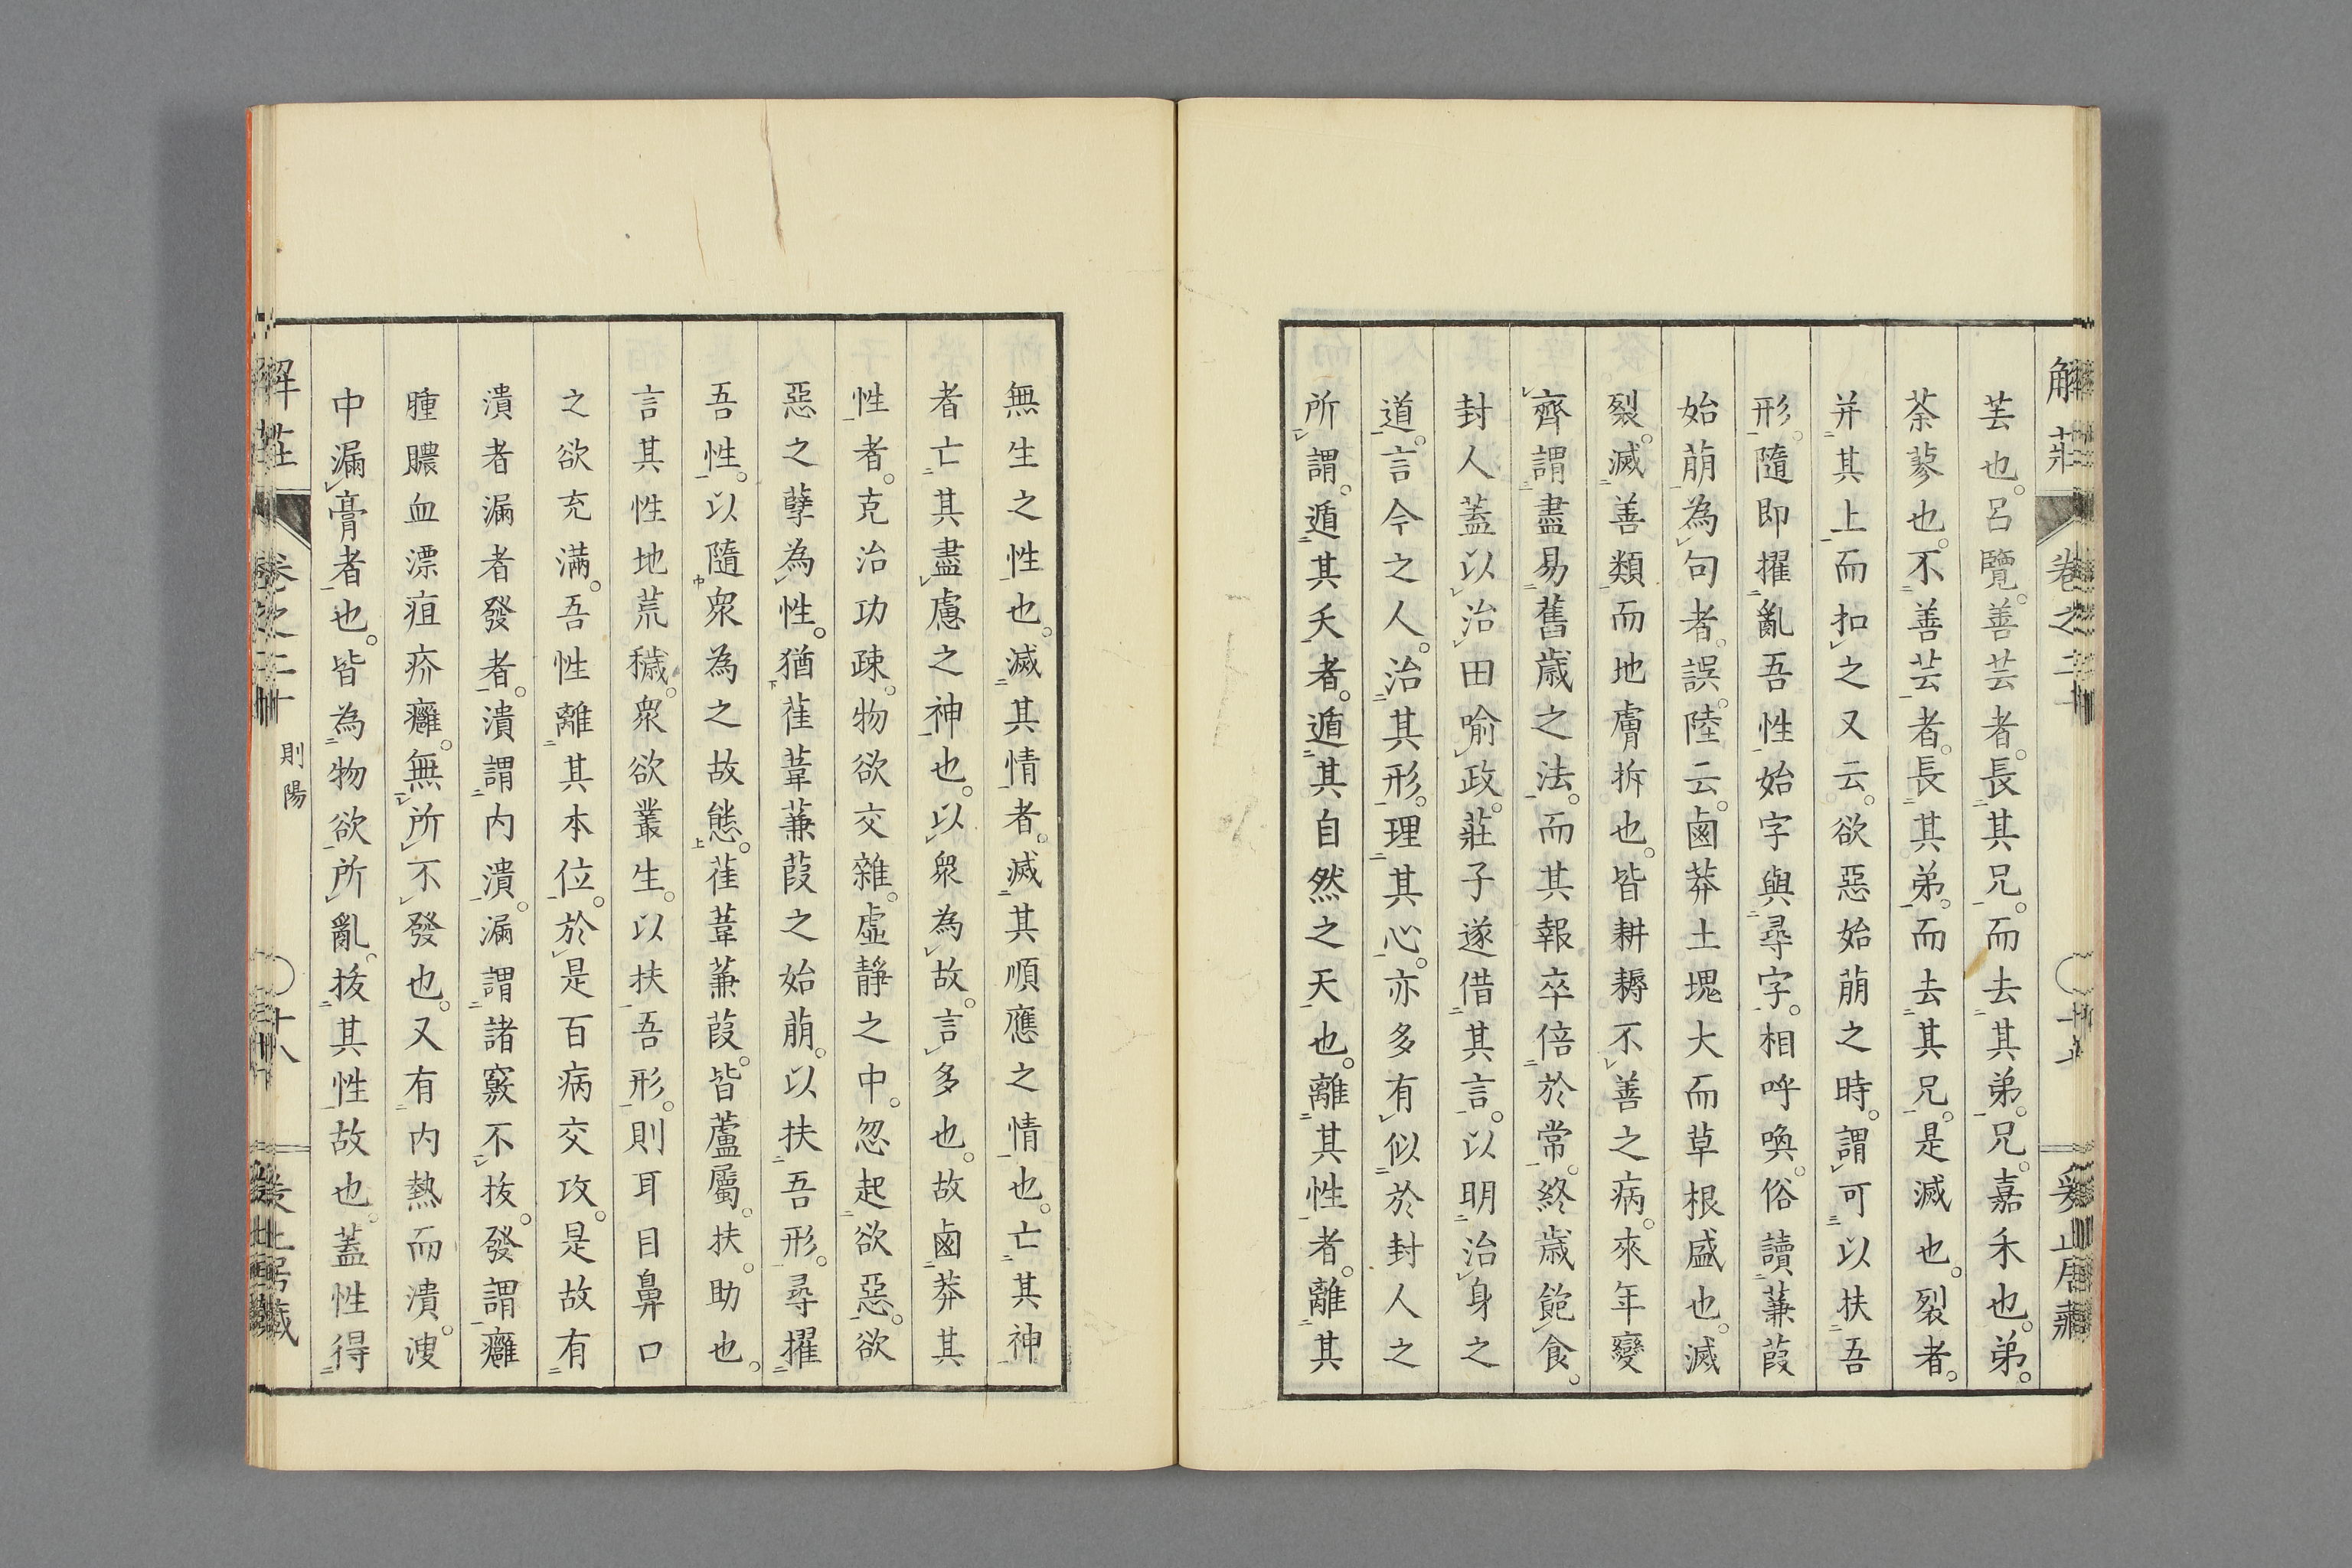 芸也。呂覽。善芸者。長其兄。而去其弟。兄。嘉禾也。弟。
荼蓼也。不善芸者。長其弟。而去其兄。是滅也。裂者。
并其上而扣之又云。欲惡始萠之時。謂可以扶吾
形。隨即擢亂吾性始字與尋字。相呼喚。俗讀蒹葭
始萠為句者。誤。陸云。鹵莽土塊大而草根盛也。滅
裂。滅善類而地膚拆也。皆耕耨不善之病。來年變
齊謂盡易舊歲之法。而其報卒倍於常。終歲飽食。
封人蓋以治田喻政。莊子遂借其言。以明治身之
道。言今之人。治其形。理其心。亦多有似於封人之
所謂。遁其天者。遁其自然之天也。離其性者。離其
無生之性也。滅其情者。滅其順應之情也。亡其神
者亡其盡慮之神也。以眾為故。言多也。故鹵莽其
性者。克治功疎。物欲交雜。虛靜之中。忽起欲惡。欲
惡之孽為性。猶萑葦蒹葭之始萠。以扶吾形。尋擢
吾性。以隨眾為之故態。萑葦蒹葭。皆蘆屬。扶。助也。
言其性地荒穢。眾欲叢生。以扶吾形。則耳目鼻口
之欲充滿。吾性離其本位。於是百病交攻。是故有
潰者漏者發者。潰謂內潰。漏謂諸竅不拔。發謂癰
腫膿血漂疽疥癰。無所不發也。又有內熱而潰。溲
中漏膏者也。皆為物欲所亂。拔其性故也。蓋性得
解莊 卷之二十 則陽 十八